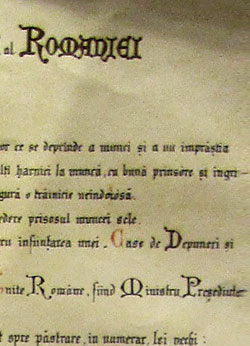 al ROMANIEI
or ce se deprinde a munci și a nu împrăștia
harnici la muncă, cu bună prinsore și îngri-
gură o trăinicie neîndoiósă.
edere prisosul muncei sele.
ru înființarea unei Case de Depuneri și
nite Române, fiind Ministru Președinte
t spre păstrare, în numerar, lei vechi :